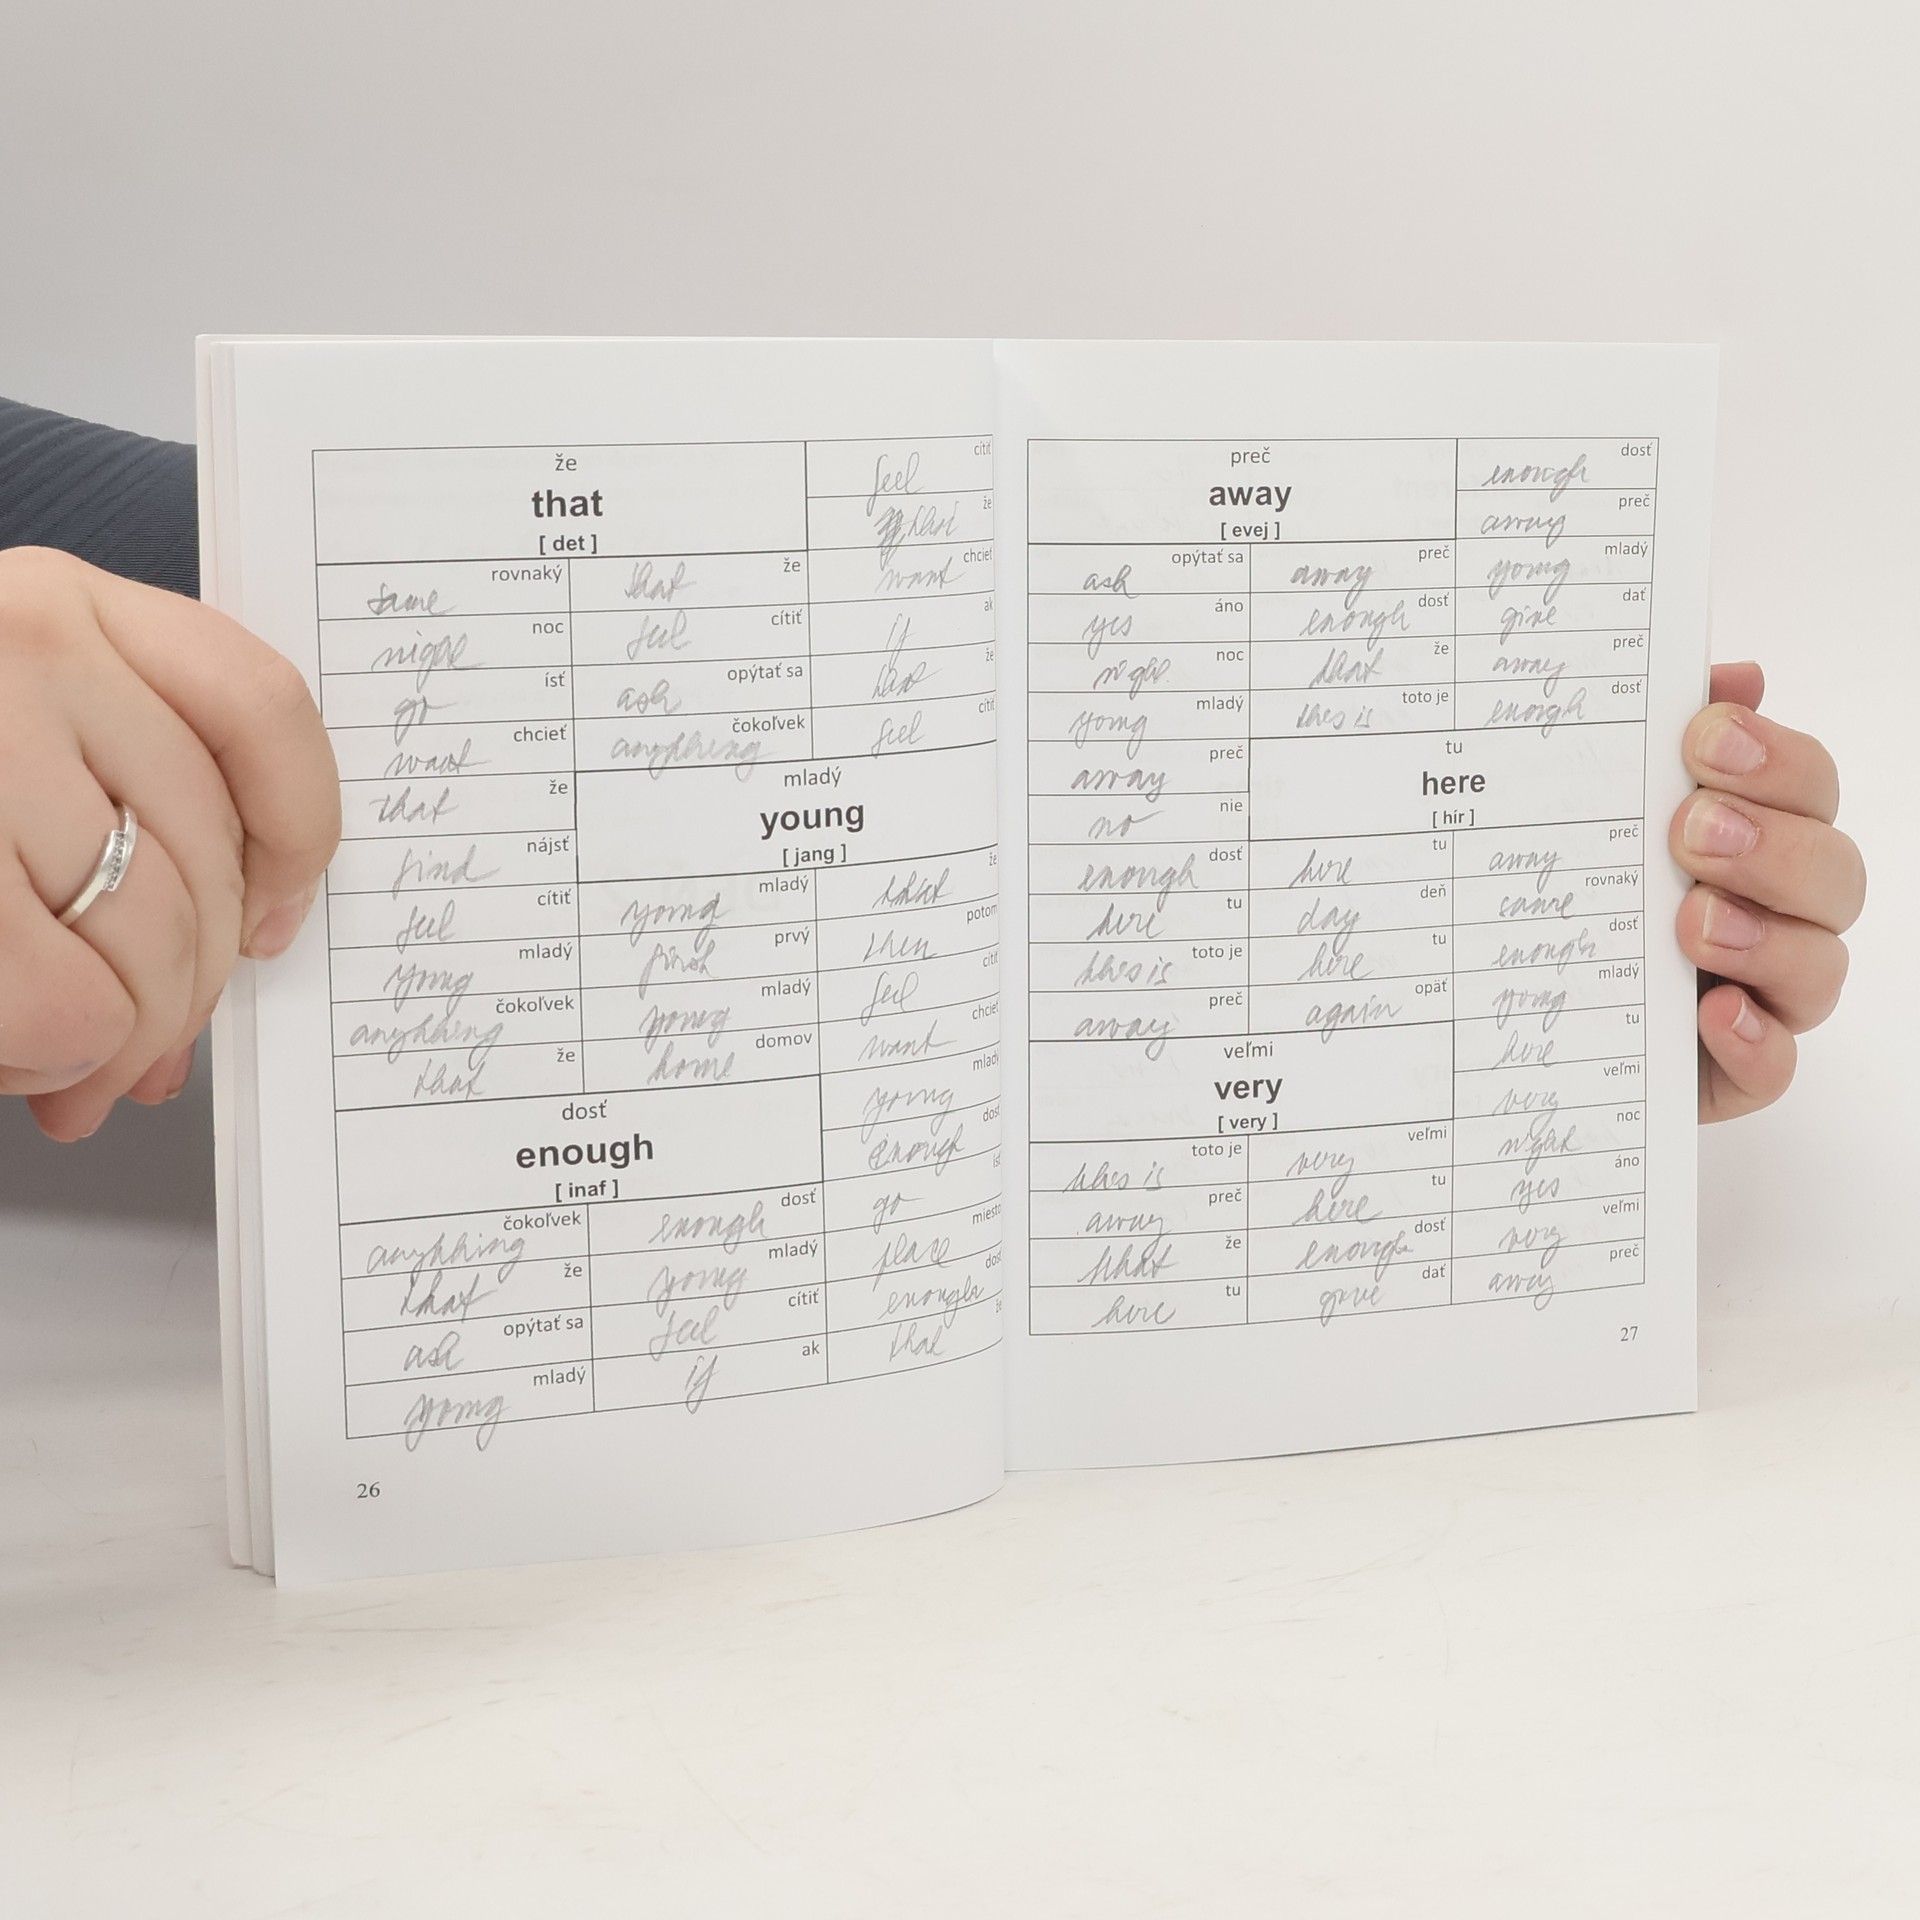 že
that
[ det ]
cítiť
feel
že
that
rovnaký
same
že
that
chcieť
want
noc
night
cítiť
feel
ak
if
ísť
go
opýtať sa
ask
že
that
chcieť
want
čokoľvek
anything
cítiť
feel
že
that
mladý
young
[ jang ]
nájsť
find
cítiť
feel
mladý
young
že
that
mladý
young
prvý
first
potom
then
čokoľvek
anything
mladý
young
cítiť
feel
že
that
domov
home
chcieť
want
dosť
enough
[ inaf ]
mladý
young
dosť
enough
čokoľvek
anything
dosť
enough
ísť
go
že
that
mladý
young
miesto
place
opýtať sa
ask
cítiť
feel
dosť
enough
mladý
young
ak
if
že
that
26
preč
away
[ evej ]
dosť
enough
preč
away
opýtať sa
ask
preč
away
mladý
young
áno
yes
dosť
enough
dať
give
noc
night
že
that
preč
away
mladý
young
toto je
this is
dosť
enough
preč
away
tu
here
[ hír ]
nie
no
dosť
enough
tu
here
preč
away
tu
here
deň
day
rovnaký
same
toto je
this is
tu
here
dosť
enough
preč
away
opäť
again
mladý
young
veľmi
very
[ very ]
tu
here
veľmi
very
toto je
this is
veľmi
very
noc
night
preč
away
tu
here
áno
yes
že
that
dosť
enough
veľmi
very
tu
here
dať
give
preč
away
27